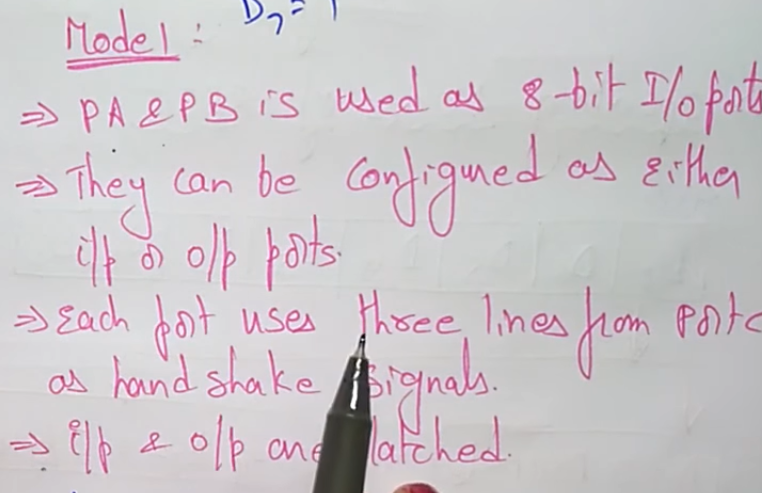 D7 = 1
Mode 1 :
⇒ PA & PB is used as 8-bit I/o ports
⇒ They can be configured as either
i/p or o/p ports.
⇒ Each port uses three lines from port c
as hand shake signals.
⇒ i/p & o/p are latched.